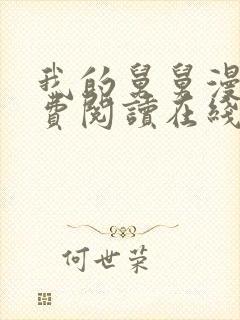 我的舅舅漫
費閱讀在綫
何世荣